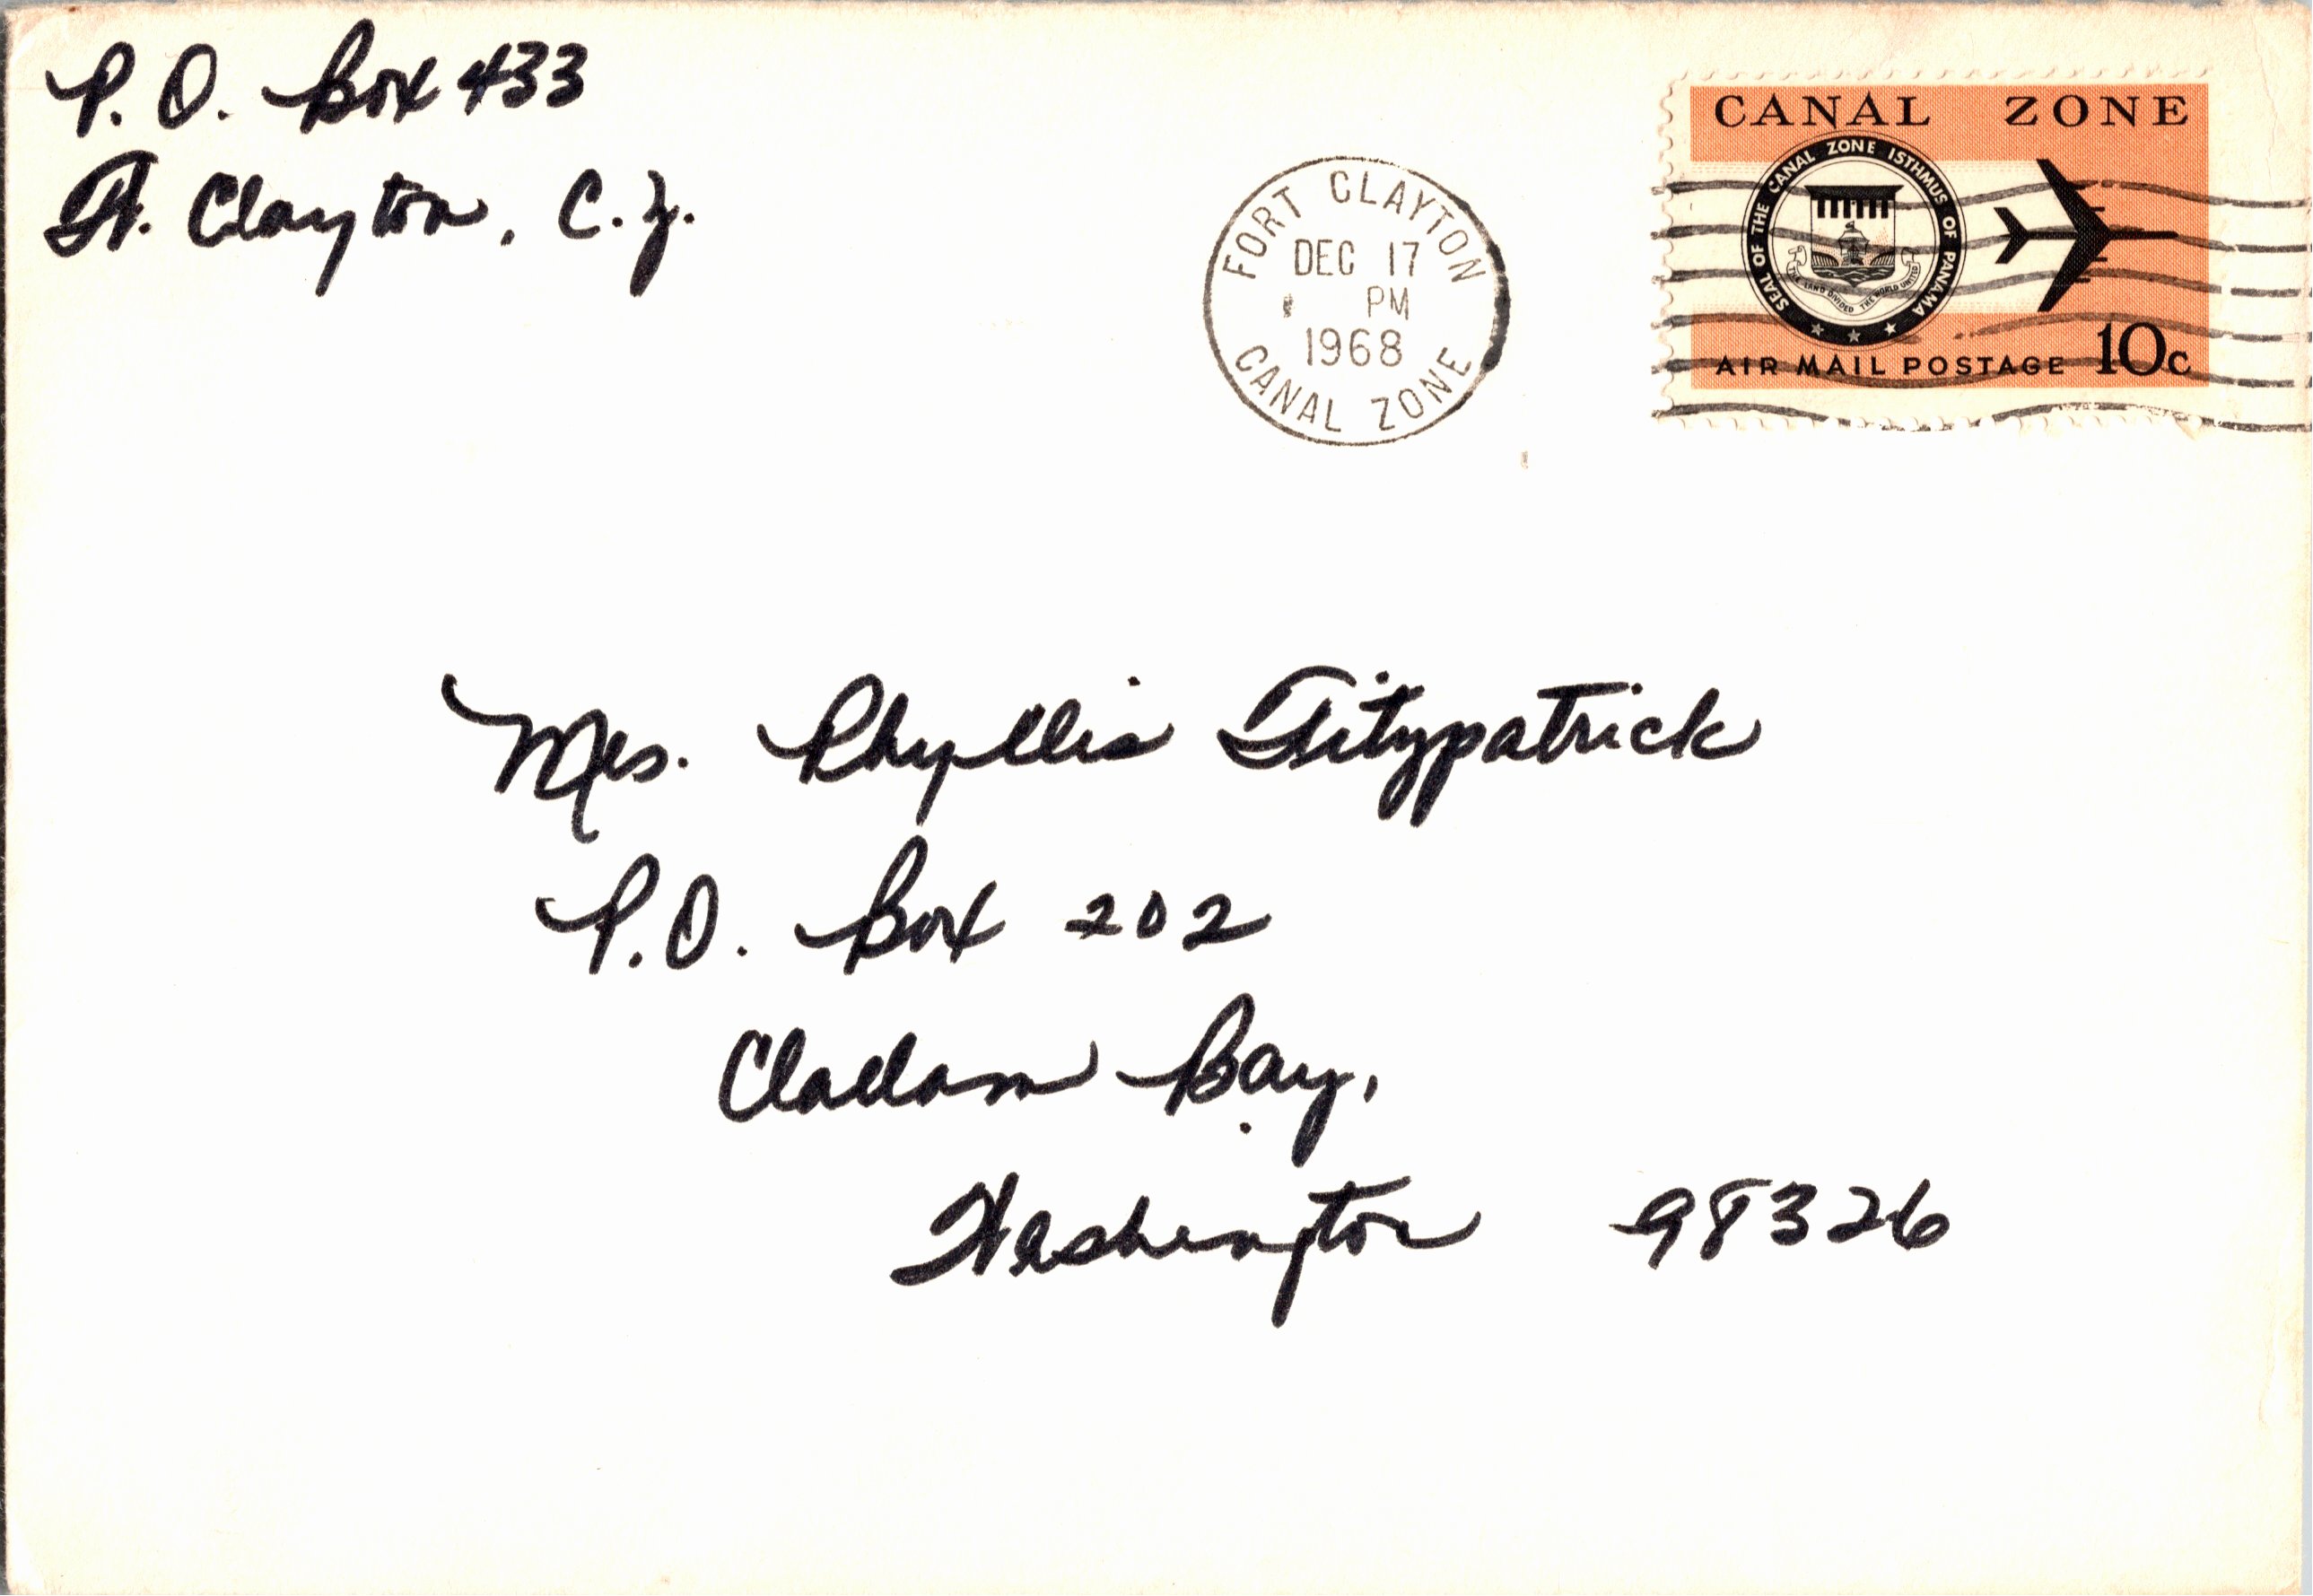 P.O. Box 433
Ft. Clayton, C.Z.
FORT CLAYTON
DEC 17
PM
1968
CANAL ZONE
CANAL ZONE
SEAL OF THE CANAL ZONE ISTHMUS OF PANAMA
THE LAND DIVIDED THE WORLD UNITED
AIR MAIL POSTAGE 10c
Mrs. Phyllis Fitzpatrick
P.O. Box 202
Clallam Bay,
Washington 98326